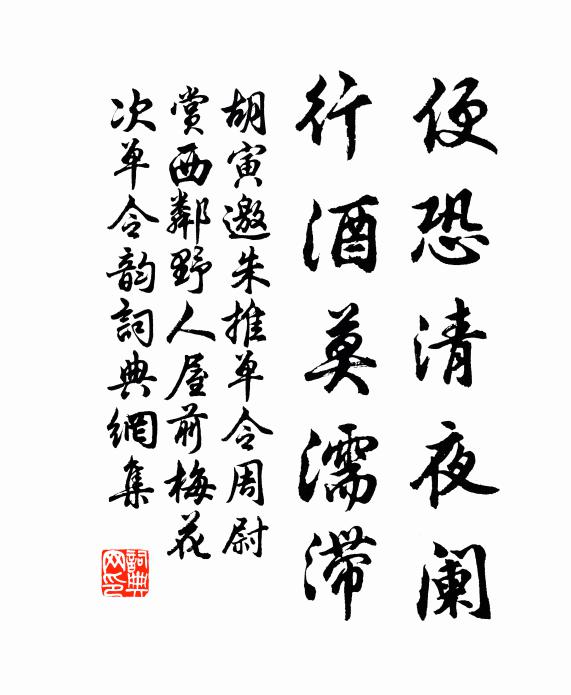 便恐清夜阑
行酒莫濡滞
胡寅邀朱推单令周尉
赏西鄰野人屋前梅花
次单令韵詞典網集
詞典网印